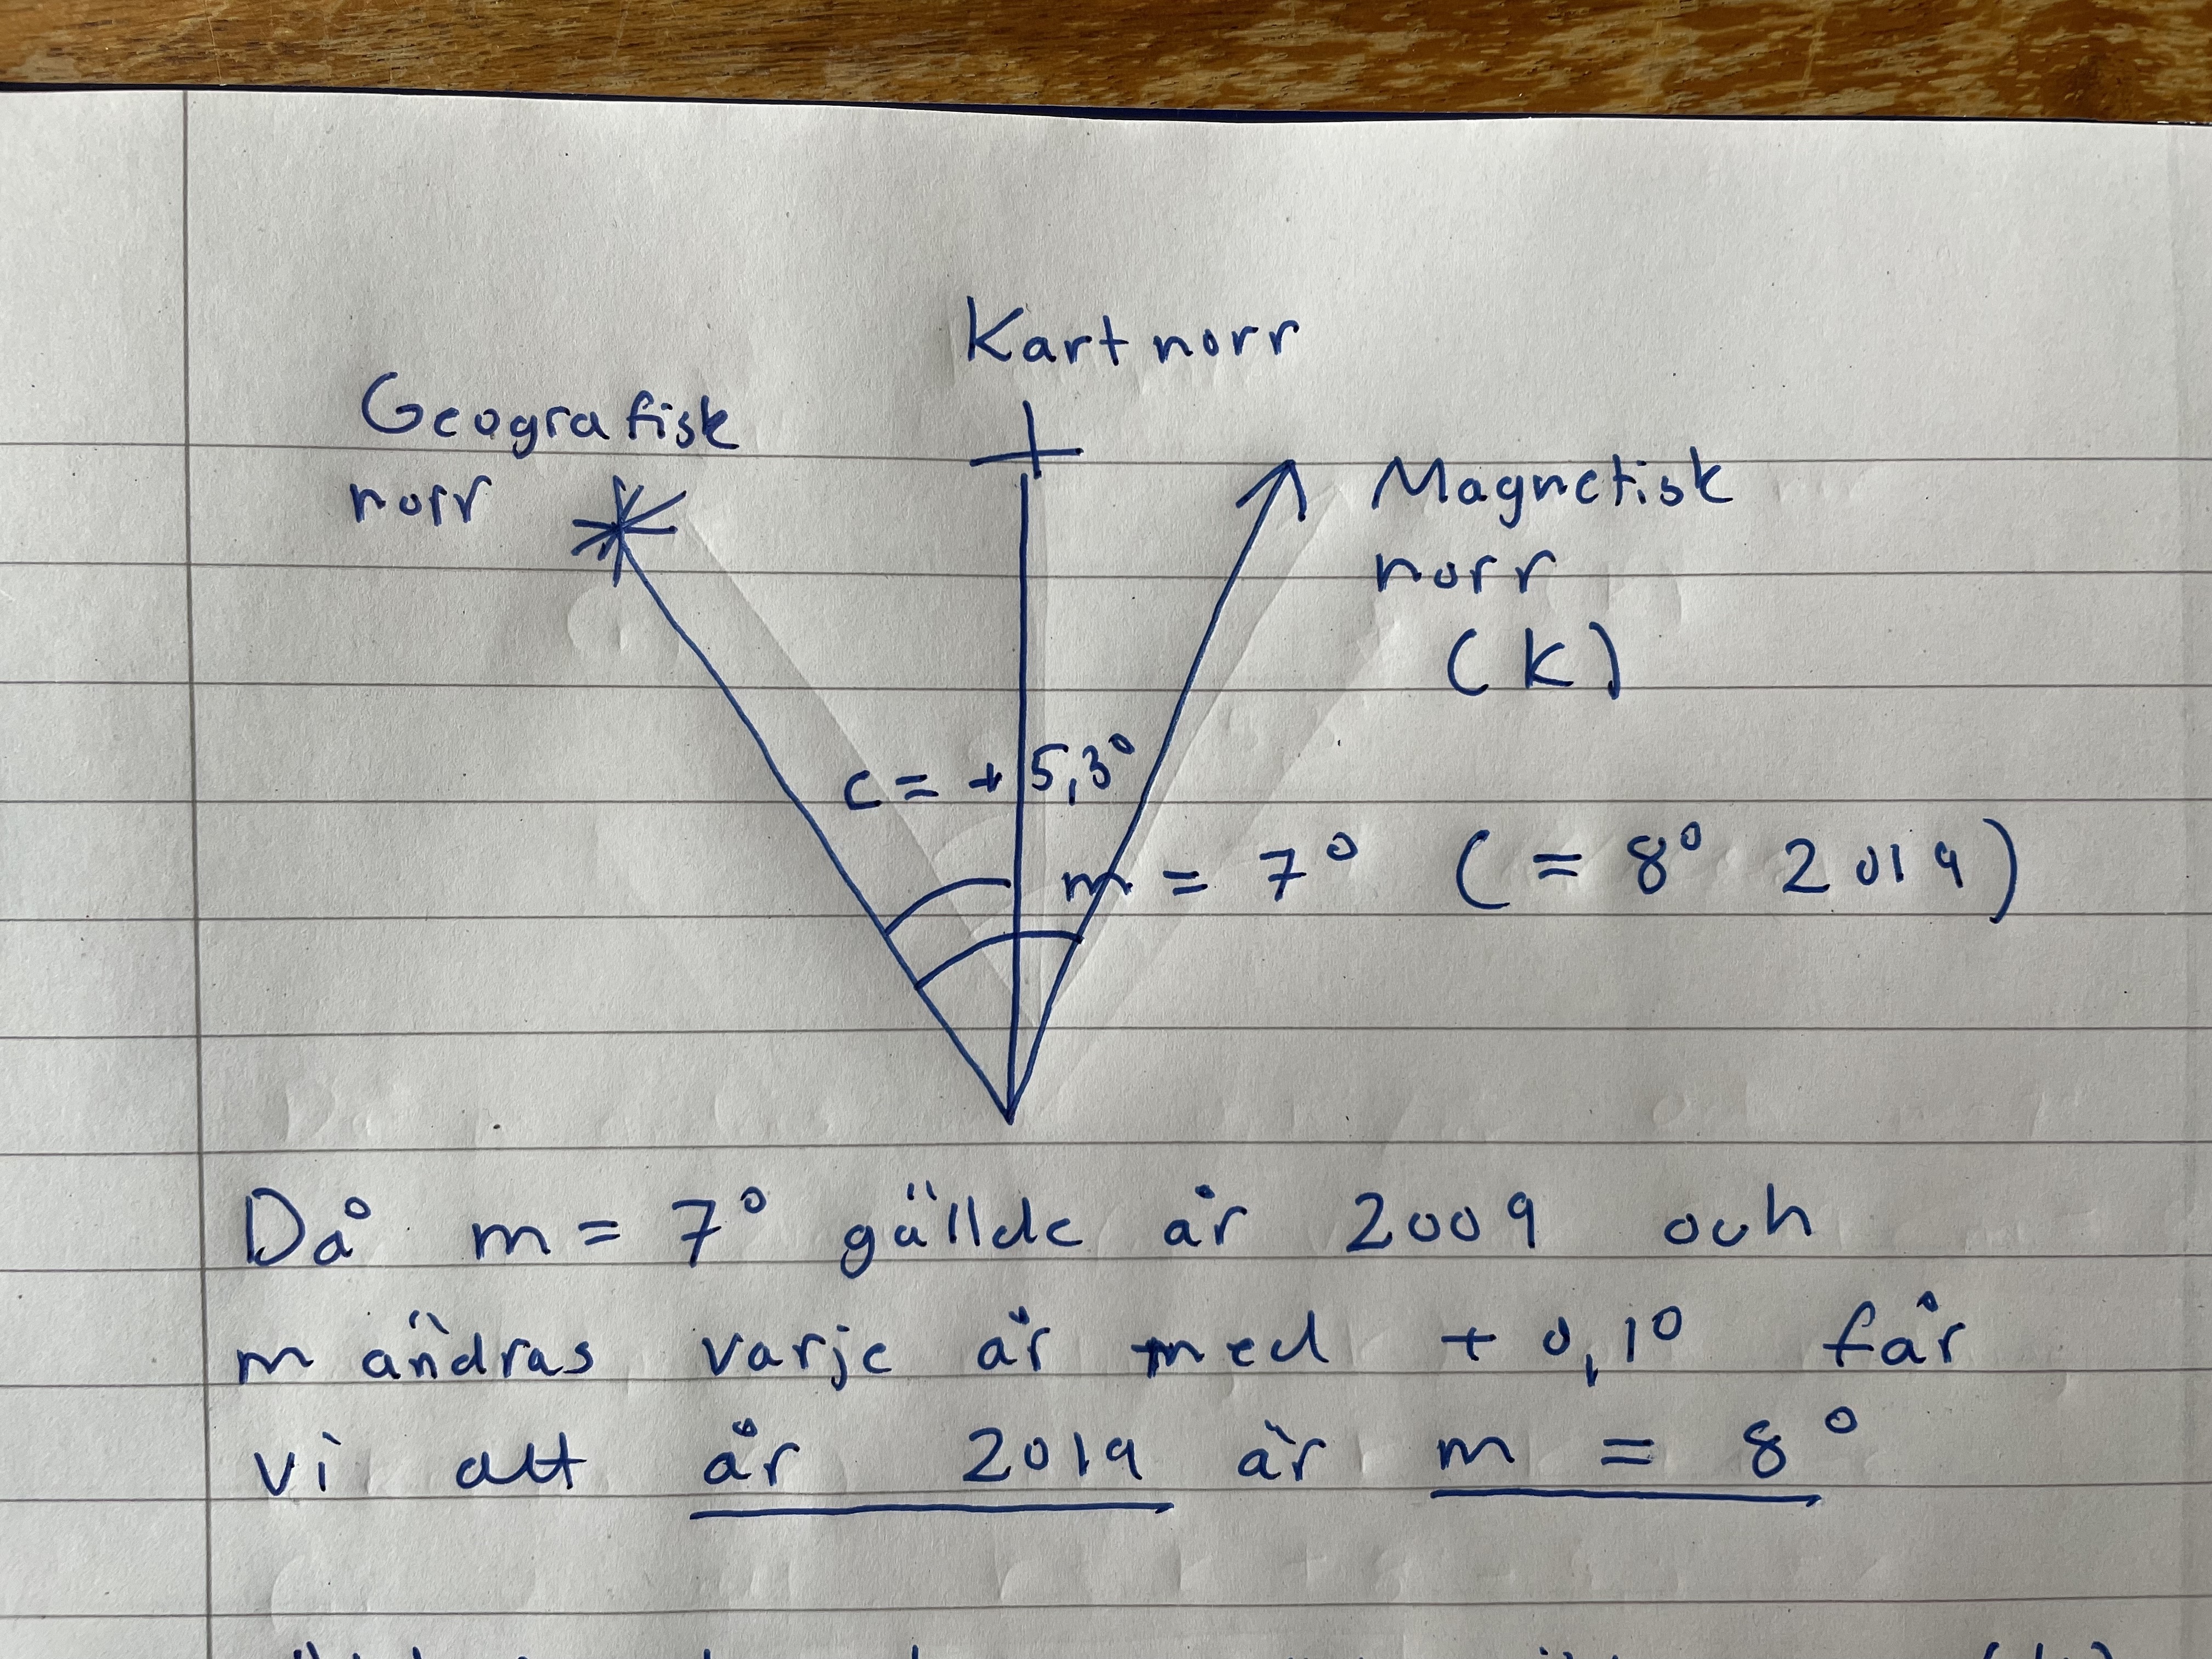 Kartnorr
Geografisk
norr
Magnetisk
norr
(K)
c = + 5,3°
m = 7° (= 8° 2019)
Då m = 7° gällde år 2009 och
m ändras varje år med + 0,1° får
vi att år 2019 är m = 8°